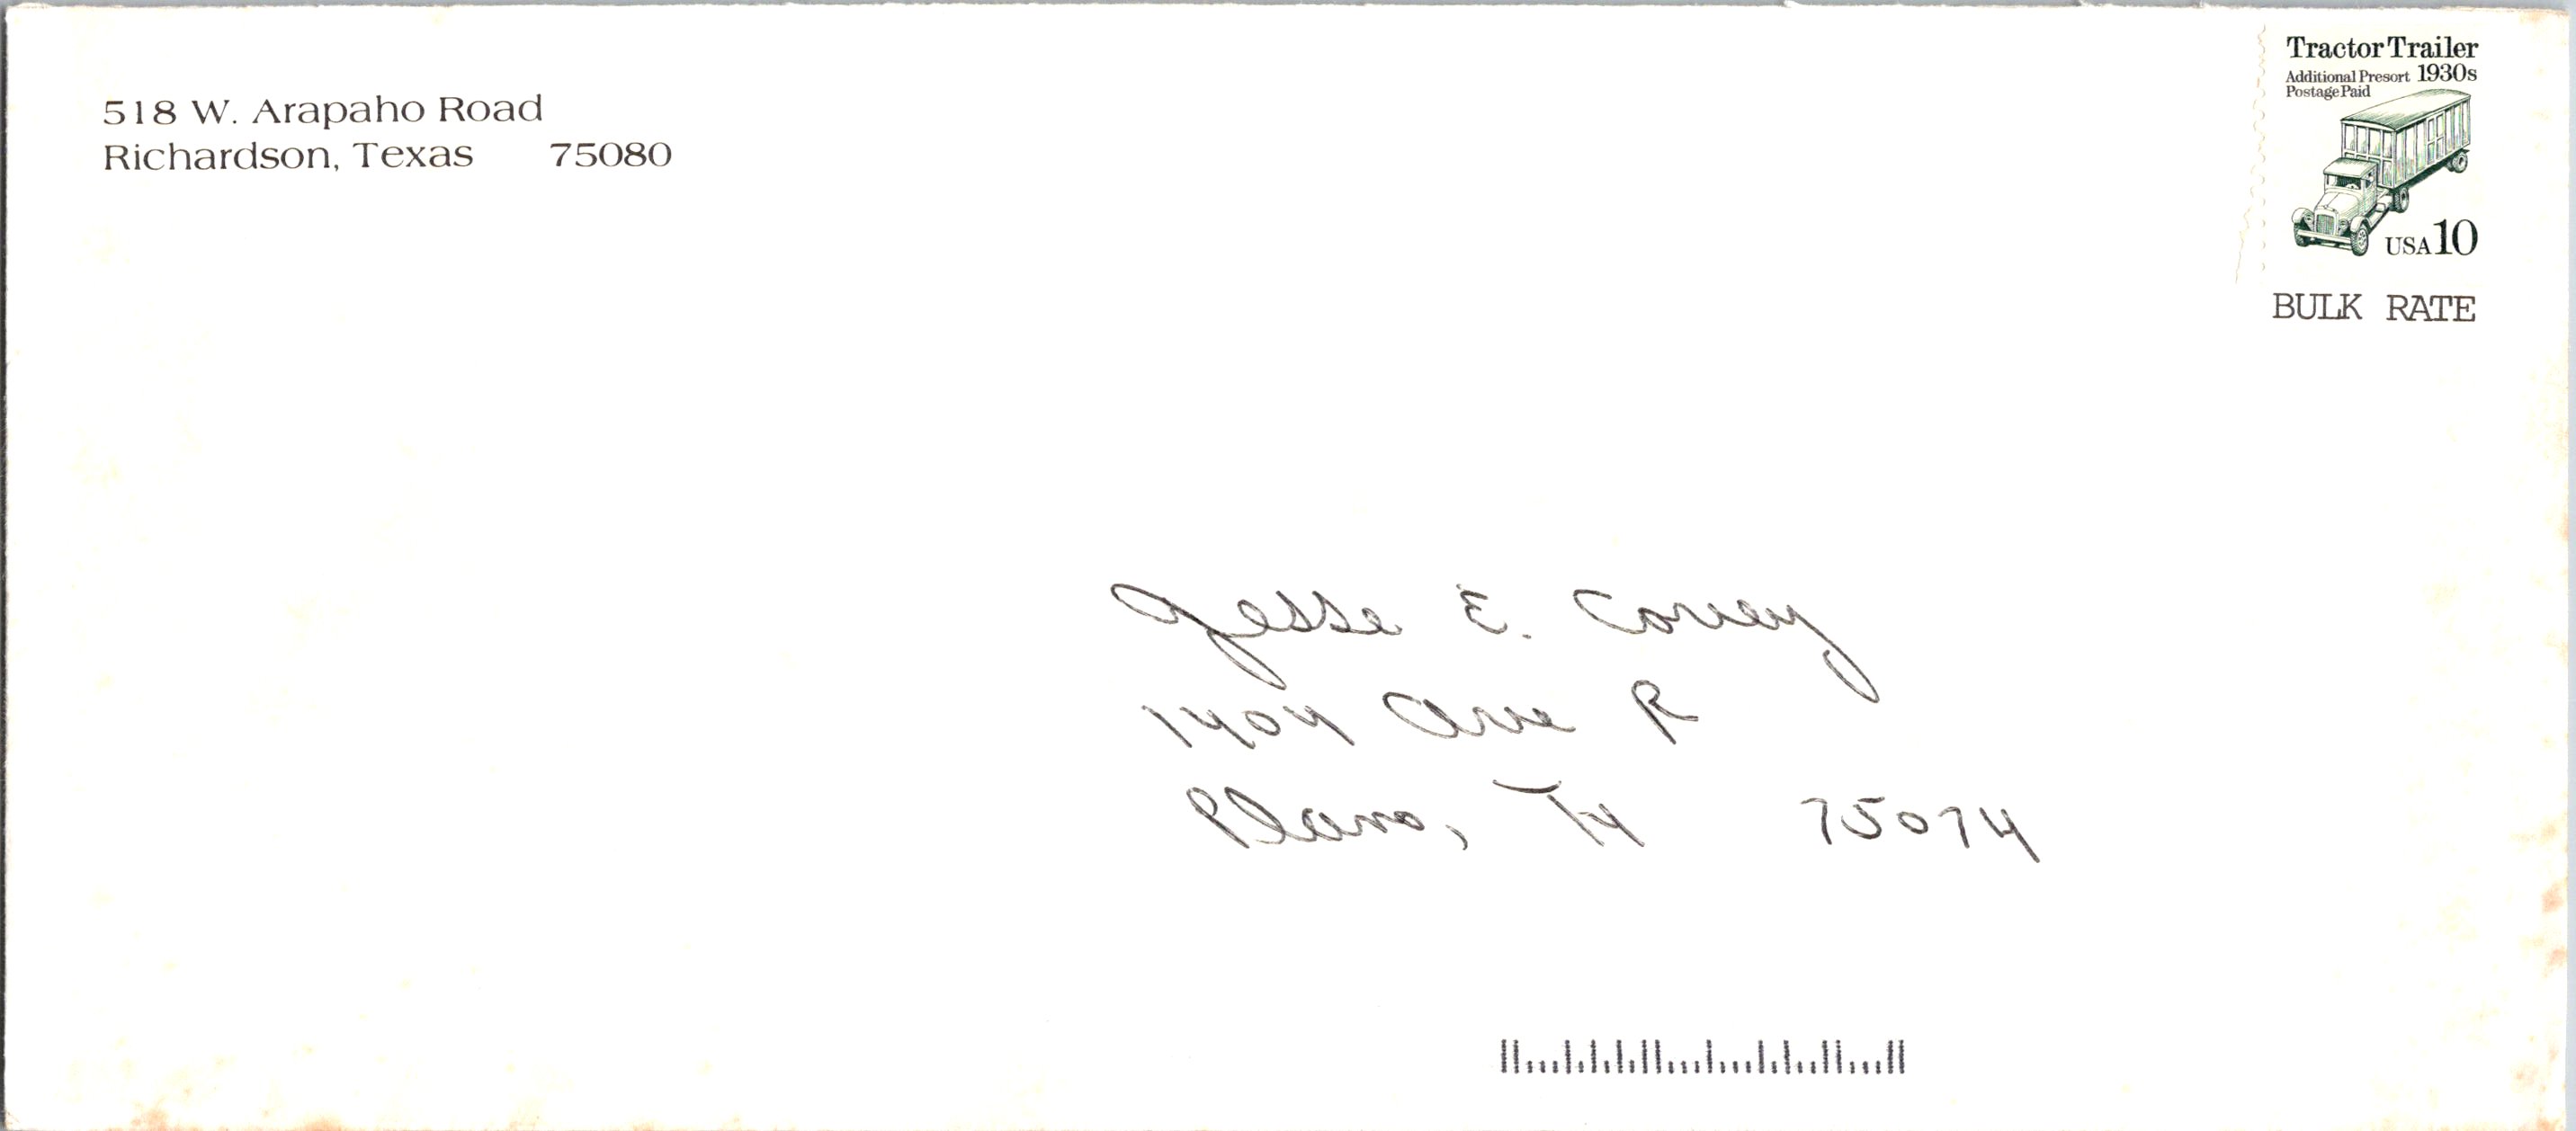 518 W. Arapaho Road
Richardson, Texas 75080
Tractor Trailer
Additional Presort 1930s
Postage Paid
USA 10
BULK RATE
Jesse E. Covey
1404 Ave R
Plano, Tx 75074